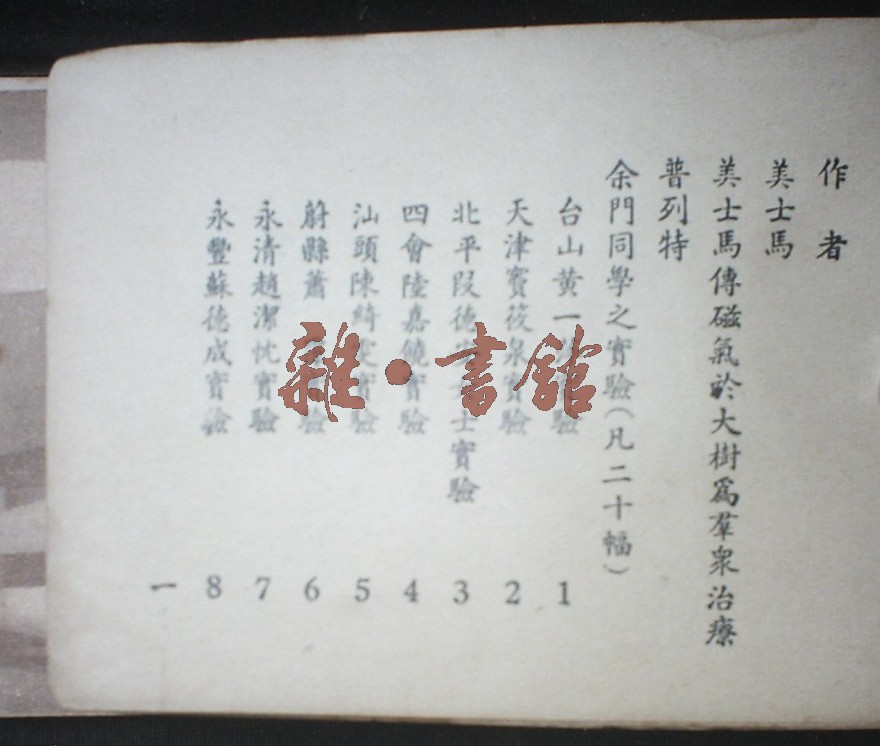 作者
美士馬
美士馬傳磁氣於大樹爲羣衆治療
普列特
余門同學之實驗(凡二十幅)
台山黄一實驗 1
天津竇筱泉實驗 2
北平段德士實驗 3
四會陸嘉饒實驗 4
汕頭陳綺雯實驗 5
蔚縣蕭實驗 6
永清趙潔忱實驗 7
永豐蘇德成實驗 8
一
雜·書館